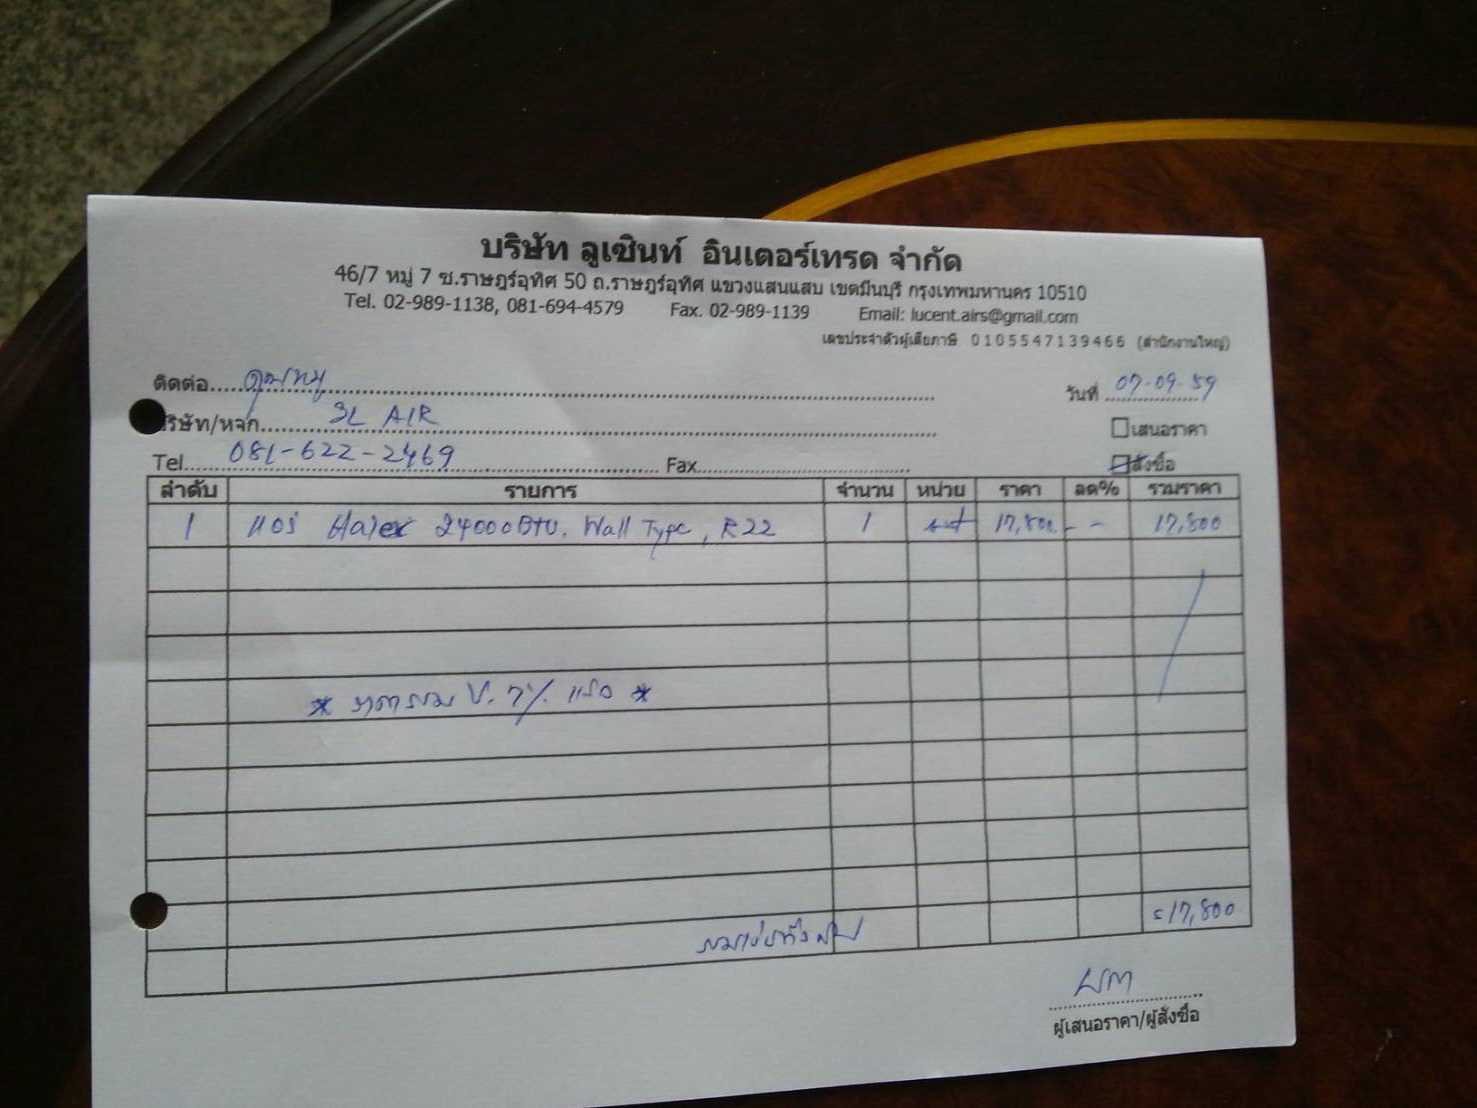 บริษัท ลูเซินท์ อินเตอร์เทรด จำกัด
46/7 หมู่ 7 ซ.ราษฎร์อุทิศ 50 ถ.ราษฎร์อุทิศ แขวงแสนแสบ เขตมีนบุรี กรุงเทพมหานคร 10510
Tel. 02-989-1138, 081-694-4579 Fax. 02-989-1139 Email: lucent.airs@gmail.com
เลขประจำตัวผู้เสียภาษี 0105547139466 (สำนักงานใหญ่)
ติดต่อ..... วันที่ 07-09-59
ริษัท/หจก..... SL AIR เสนอราคา
Tel..... 081-622-2469 Fax..... สั่งซื้อ
ลำดับ รายการ จำนวน หน่วย ราคา ลด% รวมราคา
1 แอร์ 24000BTU. Wall Type, R22 1 17,800.- - 17,800
* ราคารวม V. 7% แล้ว *
รวมเป็นเงิน = 17,800
ผู้เสนอราคา/ผู้สั่งซื้อ